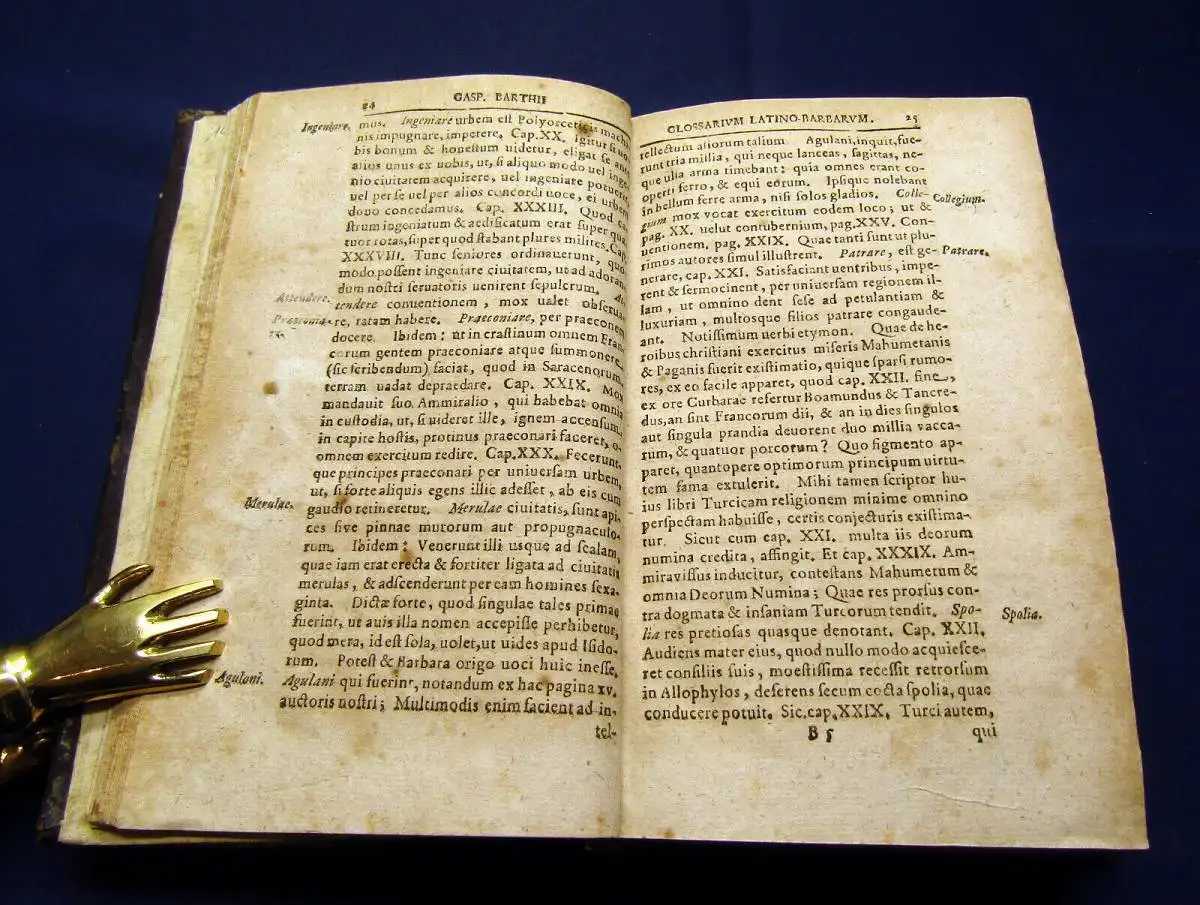 24 GASP. BARTHII
Ingeniare. mus. Ingeniare urbem est Polyorceticis machi-
nis impugnare, impetere. Cap. XX. Igitur si uo-
bis bonum & honestum uidetur, eligat se ante
alios unus ex uobis, ut, si aliquo modo uel inge-
nio ciuitatem acquirere, uel ingeniare potuerit,
uel per se uel per alios concordi uoce, ei urbem
dono concedamus. Cap. XXXIII. Quod ca-
strum ingeniatum & aedificatum erat super qua-
tuor rotas, super quod stabant plures milites. Cap.
XXXVIII. Tunc seniores ordinauerunt, quo-
modo possent ingeniare ciuitatem, ut ad adoran-
dum nostri seruatoris uenirent sepulcrum. At-
Attendere. tendere conuentionem, mox ualet obserua-
Praeconia- re, ratam habere. Praeconiare, per praeconem
re. docere. Ibidem: ut in crastinum omnem Fran-
corum gentem praeconiare atque summonere
(sic scribendum) faciat, quod in Saracenorum
terram uadat depraedare. Cap. XXIX. Mox
mandauit suo Ammiralio, qui habebat omnia
in custodia, ut, si uideret ille, ignem accensum
in capite hostis, protinus praeconari faceret,
omnem exercitum redire. Cap. XXX. Fecerunt,
que principes praeconari per uniuersam urbem,
ut, si forte aliquis egens illic adesset, ab eis cum
Merulae. gaudio retineretur. Merulae ciuitatis, sunt api-
ces sive pinnae murorum aut propugnaculo-
rum. Ibidem: Venerunt illi usque ad scalam,
quae iam erat erecta & fortiter ligata ad ciuitatis
merulas, & adscenderunt per eam homines sexa-
ginta. Dictæ forte, quod singulae tales primae
fuerint, ut auis illa nomen accepisse perhibetur,
quod mera, id est sola, uolet, ut uides apud Isido-
rum. Potest & Barbara origo uoci huic inesse.
Agulani. Agulani qui fuerint, notandum ex hac pagina xv.
auctoris nostri; Multimodis enim facient ad in-
tel-
GLOSSARIVM LATINO-BARBARVM. 25
tellectum aliorum talium Agulani, inquit, fue-
runt tria millia, qui neque lanceas, sagittas, ne-
que ulla arma timebant: quia omnes erant co-
operti ferro, & equi eorum. Ipsique nolebant
in bellum ferre arma, nisi solos gladios. Colle-
gium mox vocat exercitum eodem loco; ut & Collegium.
pag. XX. uelut contubernium, pag. XXV. Con-
uentionem. pag. XXIX. Quae tanti sunt ut plu-
rimos autores simul illustrent. Patrare, est ge- Patrare.
nerare, cap. XXI. Satisfaciant uentribus, impe-
rent & sermocinent, per uniuersam regionem il-
lam, ut omnino dent sese ad petulantiam &
luxuriam, multosque filios patrare congaude-
ant. Notissimum uerbi etymon. Quae de he-
roibus christiani exercitus miseris Mahumetanis
& Paganis fuerit existimatio, quique sparsi rumo-
res, ex eo facile apparet, quod cap. XXII. fine,
ex ore Curbarae refertur Boamundus & Tancre-
dus, an sint Francorum dii, & an in dies singulos
aut singula prandia deuorent duo millia vacca-
rum, & quatuor porcorum? Quo figmento ap-
paret, quantopere optimorum principum uirtu-
tem fama extulerit. Mihi tamen scriptor hu-
ius libri Turcicam religionem minime omnino
perspectam habuisse, certis conjecturis existima-
tur. Sicut cum cap. XXI. multa iis deorum
numina credita, affingit. Et cap. XXXIX. Am-
miravissus inducitur, contestans Mahumetum &
omnia Deorum Numina; Quae res prorsus con-
tra dogmata & insaniam Turcorum tendit. Spo-
lia res pretiosas quasque denotant. Cap. XXII. Spolia.
Audiens mater eius, quod nullo modo acquiesce-
ret consiliis suis, moestissima recessit retrorsum
in Allophylos, deferens secum cocta spolia, quae
conducere potuit. Sic. cap. XXIX. Turci autem,
B 5 qui